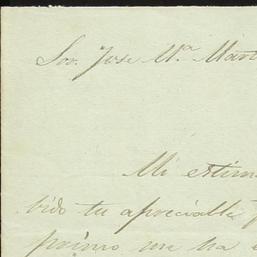 Sor. Jose Ma. Mart
Mi estim
bido tu apreciable
primo me ha